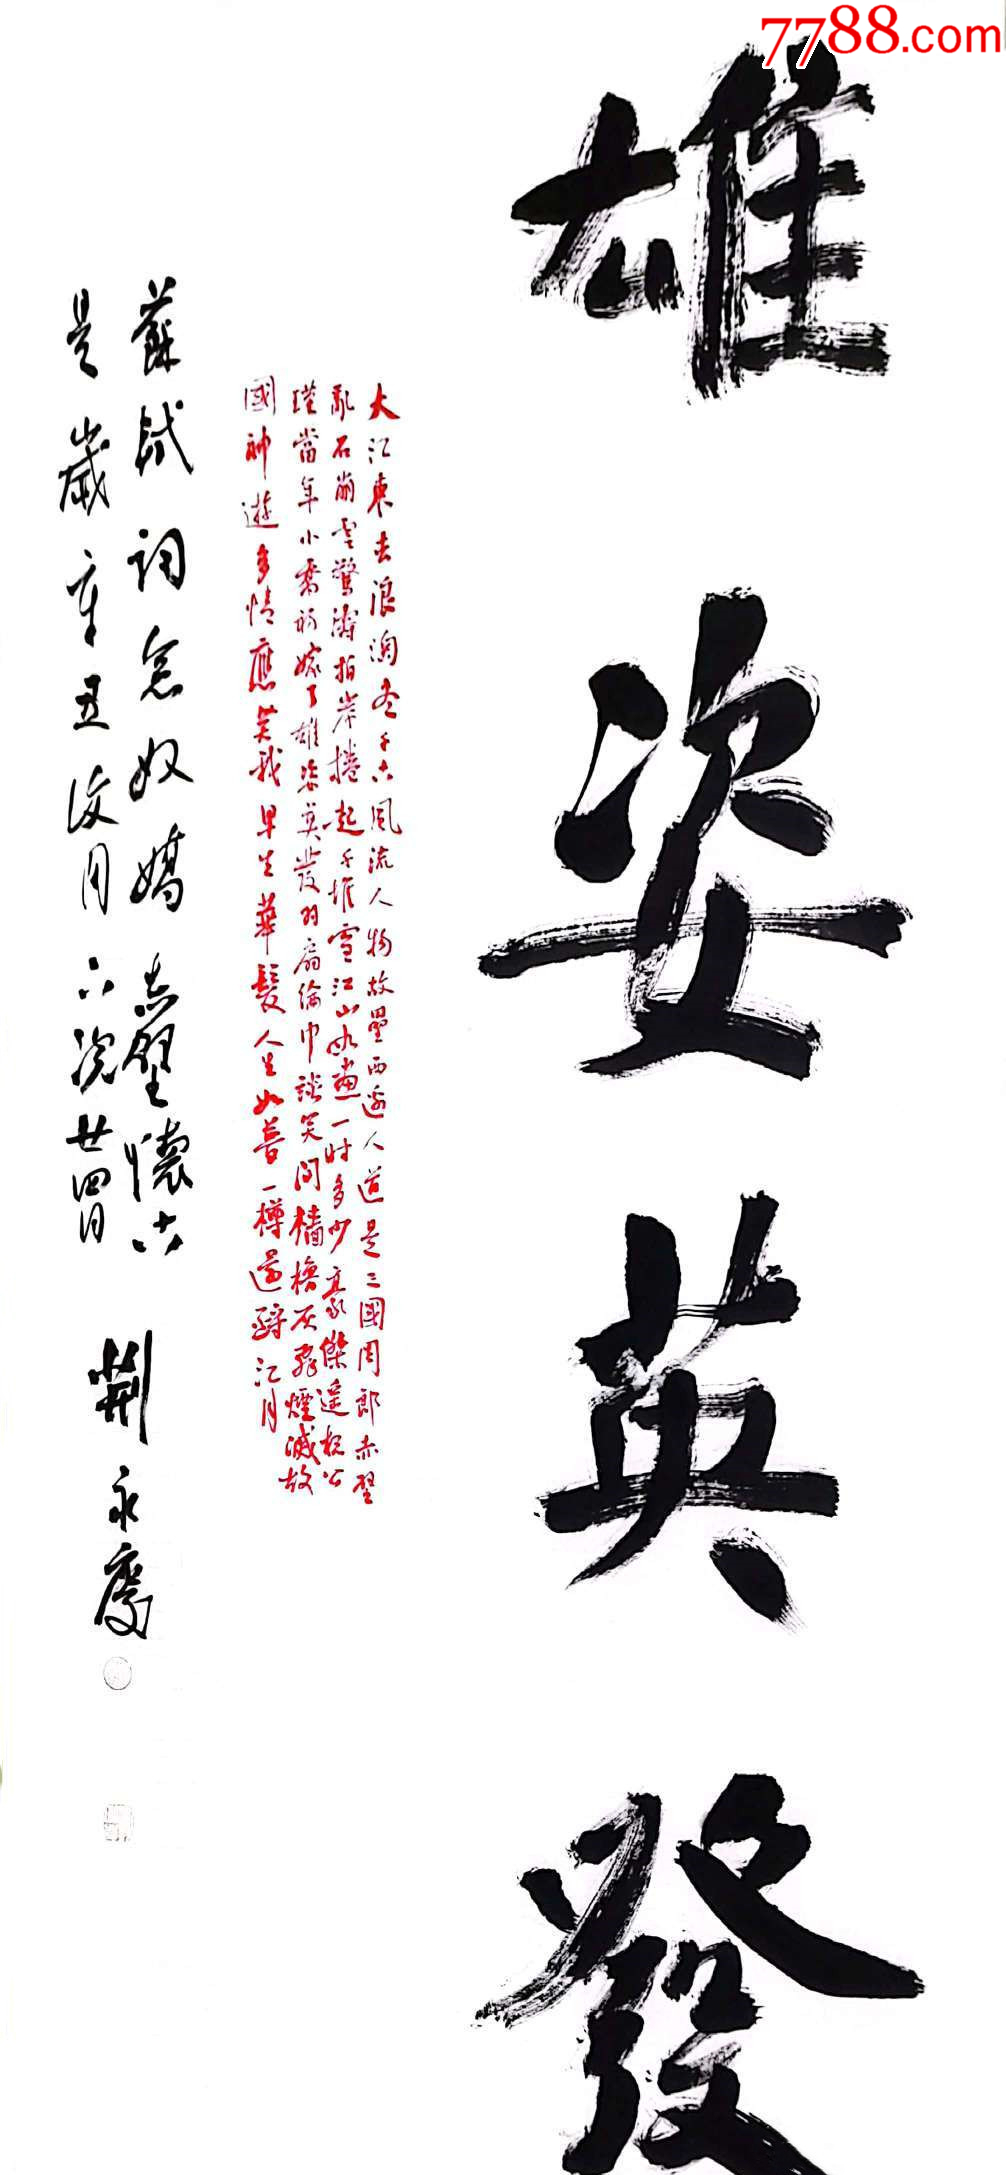 7788.com
雄姿英發
大江東去浪淘盡千古風流人物故壘西邊人道是三國周郎赤壁
亂石崩雲驚濤拍岸捲起千堆雪江山如畫一時多少豪傑遙想公
瑾當年小喬初嫁了雄姿英發羽扇綸巾談笑間檣櫓灰飛煙滅故
國神遊多情應笑我早生華髮人生如夢一樽還酹江月
蘇軾詞念奴嬌赤壁懷古
是歲辛丑月下浣廿四日
荊永慶